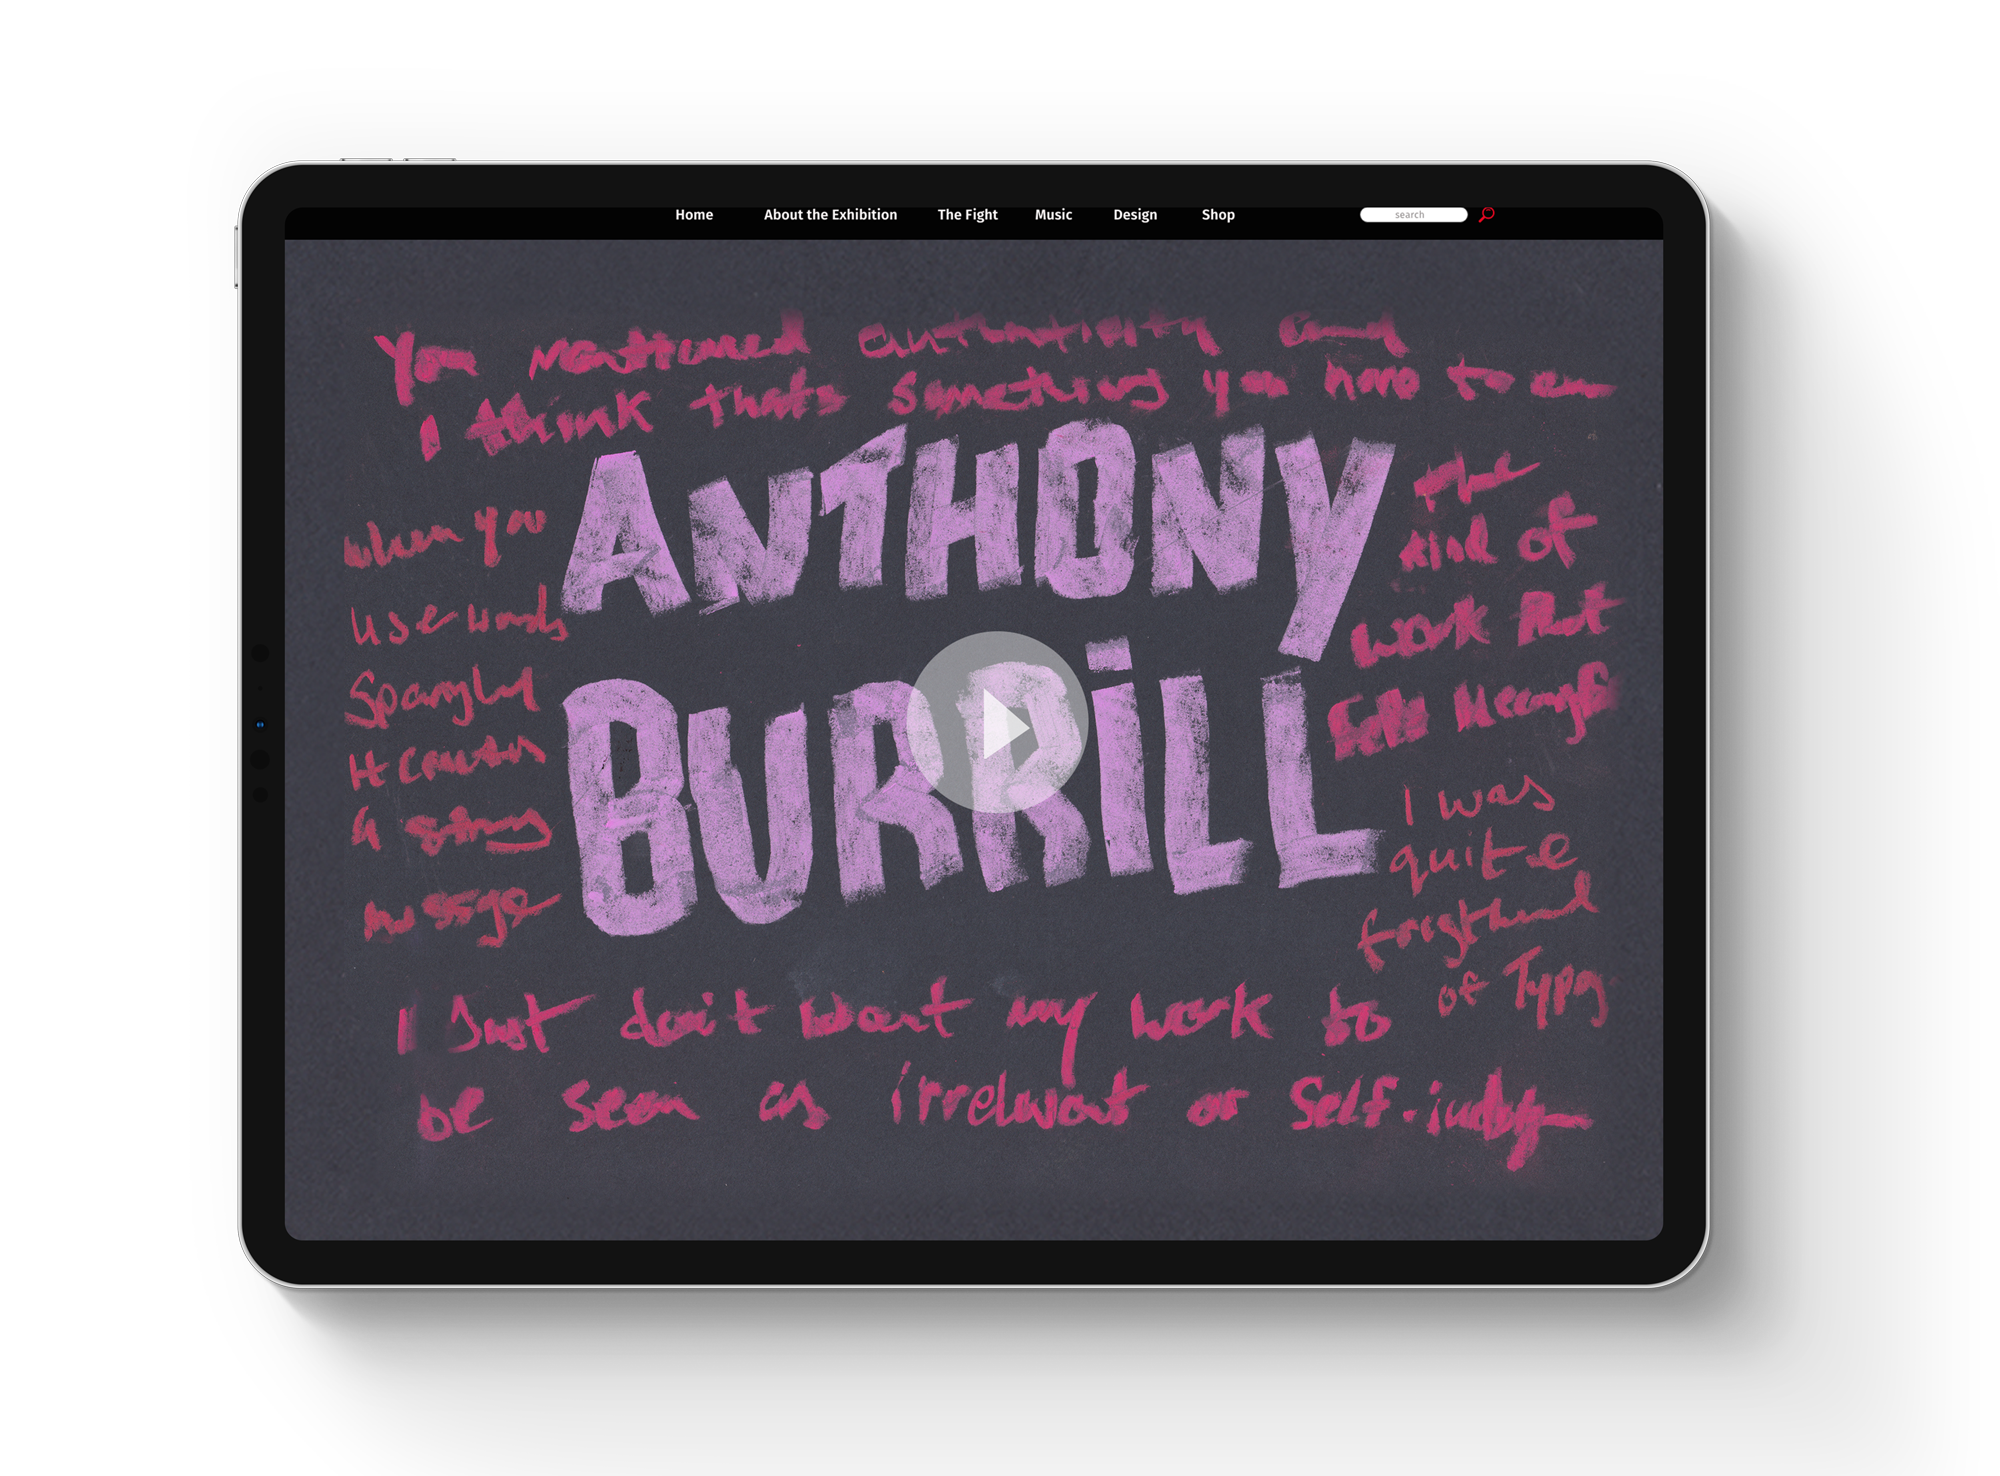 Home About the Exhibition The Fight Music Design Shop search
You mentioned authenticity and
I think thats something you have to
ANTHONY
BURRILL
when you
use words
Sparingly
It
a strong
message
the
kind of
work that
I was
quite
of Typog
I Just don't want my work to
be seen as irrelevant or Self-indulg